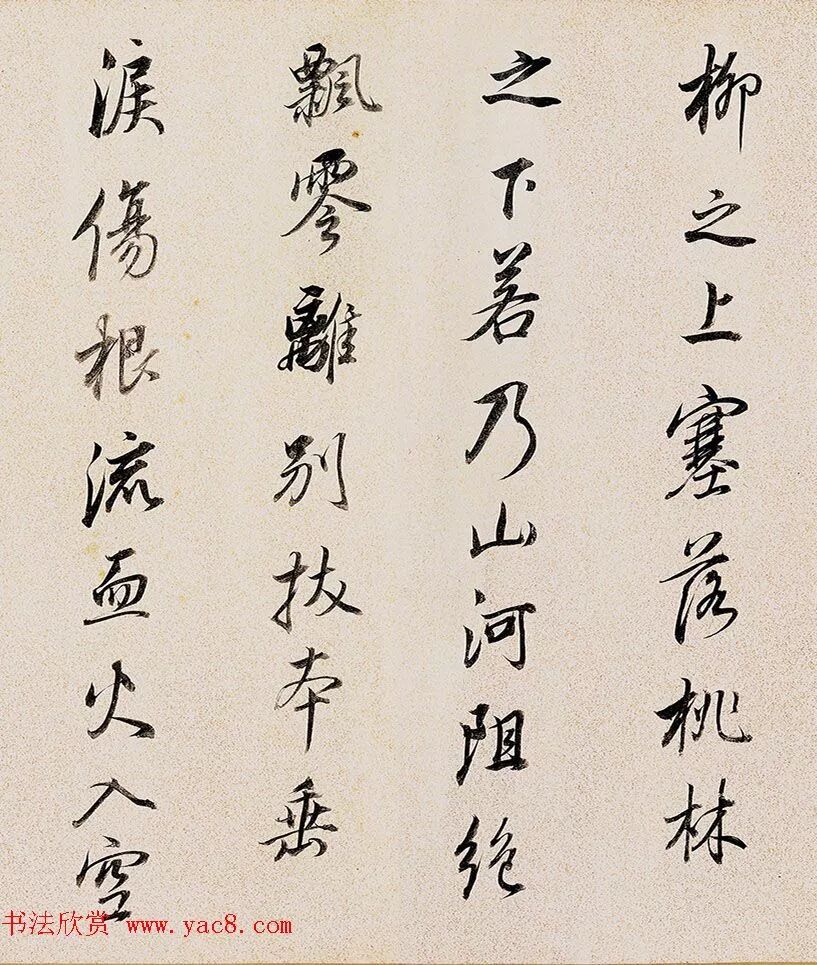 柳之上塞落桃林
之下若乃山河阻絶
飄零離別拔本垂
淚傷根流血火入空
书法欣赏 www.yac8.com